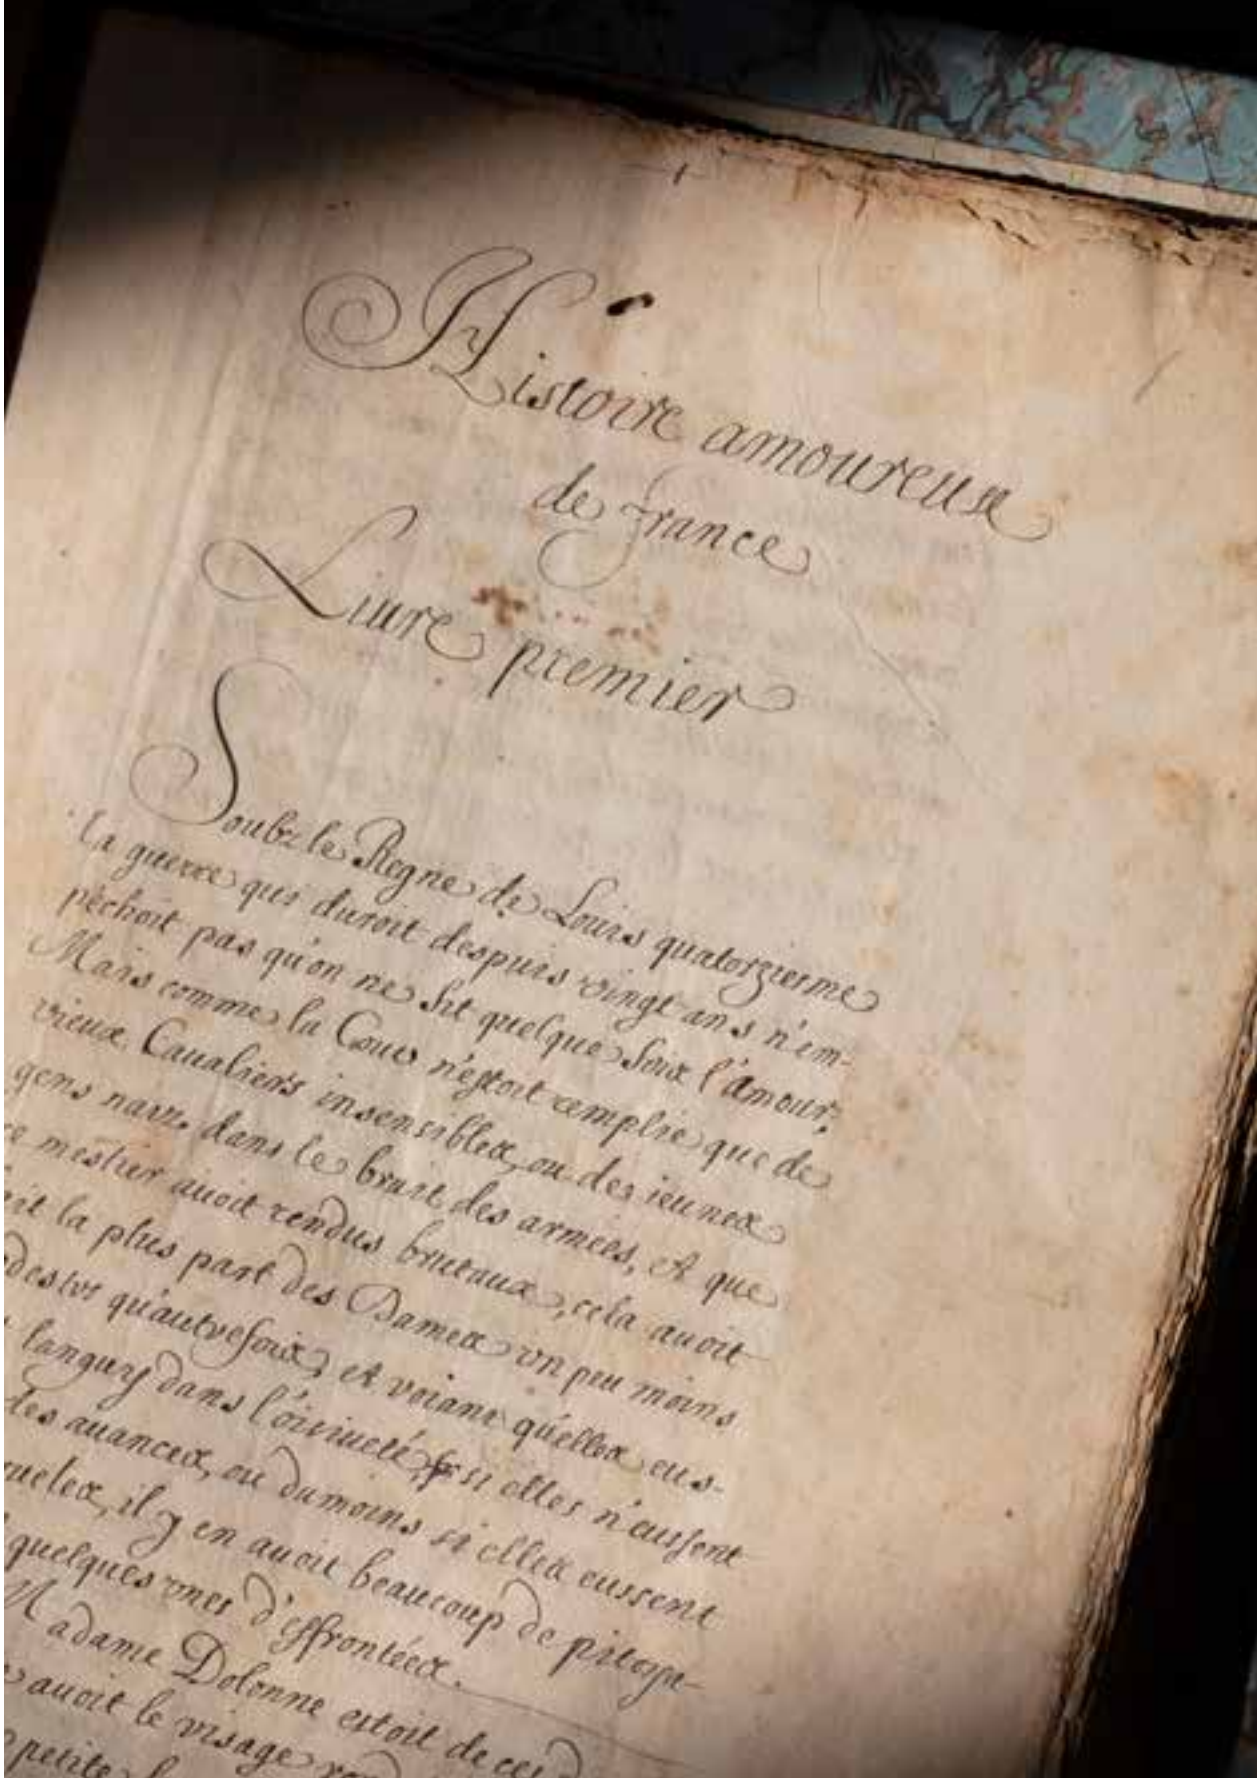 Histoire amoureuse
de france
Liure premier
Soubz le Regne de Louis quatorziesme
la guerre qui duroit despuis vingt ans n'em-
péchoit pas qu'on ne fit quelque foix l'amour,
Mais comme la Cour n'estoit remplie que de
vieux Caualiers insensibles, ou des ieunes
gens naiz dans le bruit des armées, et que
ce mestier auoit rendus brutaux, cela auoit
la plus part des Dames vn peu moins
qu'autrefois, et voiant qu'elles eus-
languy dans l'oisiueté, si elles n'eussent
des auances, ou dumoins si elles eussent
il y en auoit beaucoup de pitoya-
quelques vnes d'effrontées.
Madame Dolonne estoit de ces
auoit le visage
petite